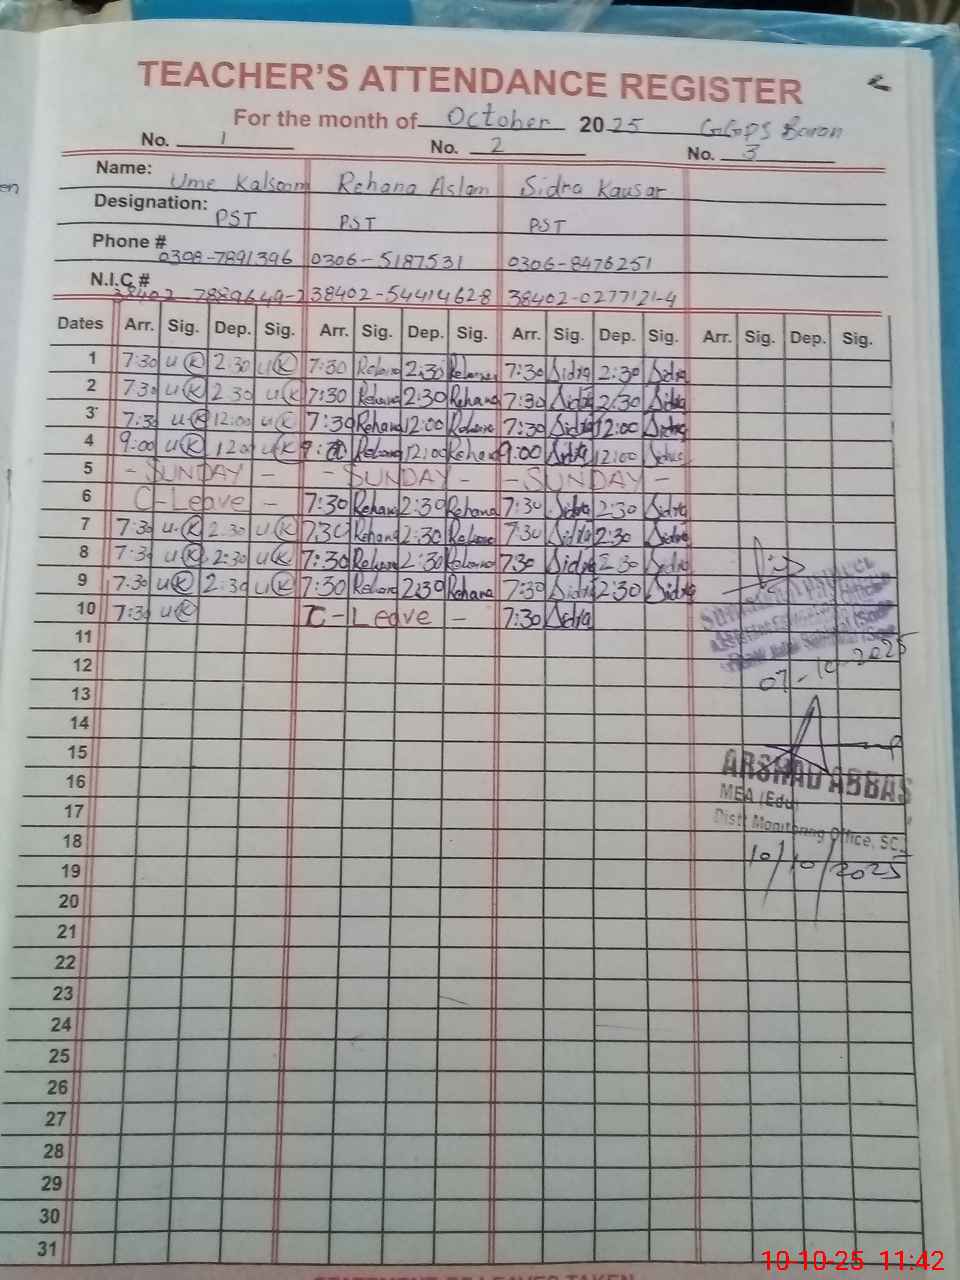 TEACHER'S ATTENDANCE REGISTER
For the month of October 2025 GGPS Baran
No. 1 No. 2 No. 3
Name: Ume Kalsoom Rehana Aslam Sidra Kausar
Designation: PST PST PST
Phone # 0308-7891396 0306-5187531 0306-8476251
N.I.C.# 38402-7889649-2 38402-54414628 38402-0277121-4
Dates Arr. Sig. Dep. Sig. Arr. Sig. Dep. Sig. Arr. Sig. Dep. Sig. Arr. Sig. Dep. Sig.
1 7:30 UK 2:30 UK 7:30 Rehana 2:30 Rehana 7:30 Sidra 2:30 Sidra
2 7:30 UK 2:30 UK 7:30 Rehana 2:30 Rehana 7:30 Sidra 2:30 Sidra
3 7:30 UK 12:00 UK 7:30 Rehana 12:00 Rehana 7:30 Sidra 12:00 Sidra
4 9:00 UK 12:00 UK Rehana 12:00 Rehana 9:00 Sidra 12:00 Sidra
5 - SUNDAY - - SUNDAY - - SUNDAY -
6 C-Leave - 7:30 Rehana 2:30 Rehana 7:30 Sidra 2:30 Sidra
7 7:30 UK 2:30 UK 7:30 Rehana 2:30 Rehana 7:30 Sidra 2:30 Sidra
8 7:30 UK 2:30 UK 7:30 Rehana 2:30 Rehana 7:30 Sidra 2:30 Sidra
9 7:30 UK 2:30 UK 7:30 Rehana 2:30 Rehana 7:30 Sidra 2:30 Sidra
10 7:30 UK C-Leave - 7:30 Sidra
11
12
07-10-2025
13
14
15
ARSHAD ABBAS
16
MEA (Edu)
17
Distt Monitoring Office, SG
18
10/10/2025
19
20
21
22
23
24
25
26
27
28
29
30
31
10-10-25 11:42